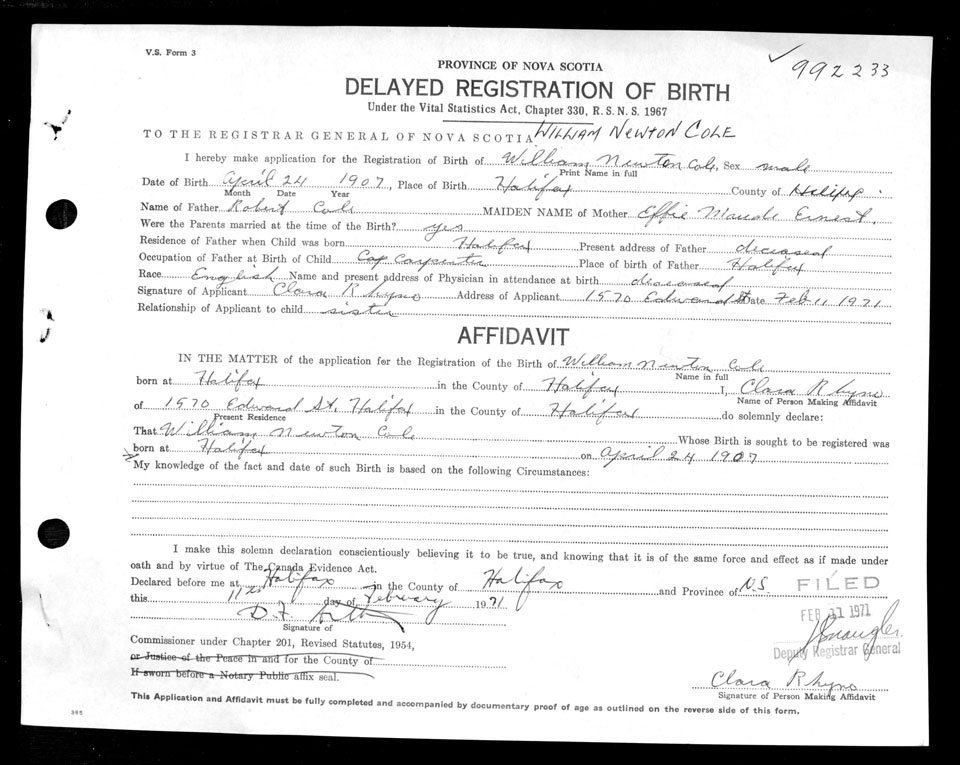 V.S. Form 3
✓ 992233
PROVINCE OF NOVA SCOTIA
DELAYED REGISTRATION OF BIRTH
Under the Vital Statistics Act, Chapter 330, R.S.N.S. 1967
TO THE REGISTRAR GENERAL OF NOVA SCOTIA WILLIAM NEWTON COLE
I hereby make application for the Registration of Birth of William Newton Cole, Sex male
Print Name in full
Date of Birth April 24 1907, Place of Birth Halifax County of Halifax
Month Date Year
Name of Father Robert Cole MAIDEN NAME of Mother Effie Maude Ernest.
Were the Parents married at the time of the Birth? yes
Residence of Father when Child was born Halifax Present address of Father deceased
Occupation of Father at Birth of Child Cap Carpenter Place of birth of Father Halifax
Race English Name and present address of Physician in attendance at birth diceased
Signature of Applicant Clara Rhyno Address of Applicant 1570 Edward St Date Feb 11 1971
Relationship of Applicant to child sister
AFFIDAVIT
IN THE MATTER of the application for the Registration of the Birth of William Newton Cole
Name in full
born at Halifax in the County of Halifax I, Clara Rhyno
Name of Person Making Affidavit
of 1570 Edward St. Halifax in the County of Halifax do solemnly declare:
Present Residence
That William Newton Cole Whose Birth is sought to be registered was
born at Halifax on April 24 1907
My knowledge of the fact and date of such Birth is based on the following Circumstances:
I make this solemn declaration conscientiously believing it to be true, and knowing that it is of the same force and effect as if made under
oath and by virtue of The Canada Evidence Act.
Declared before me at Halifax in the County of Halifax and Province of N.S.
FILED
this 11th day of February 1971
FEB 11 1971
D.F.
Signature of
Deputy Registrar General
Commissioner under Chapter 201, Revised Statutes, 1954,
or Justice of the Peace in and for the County of
If sworn before a Notary Public affix seal.
Clara Rhyno
Signature of Person Making Affidavit
This Application and Affidavit must be fully completed and accompanied by documentary proof of age as outlined on the reverse side of this form.